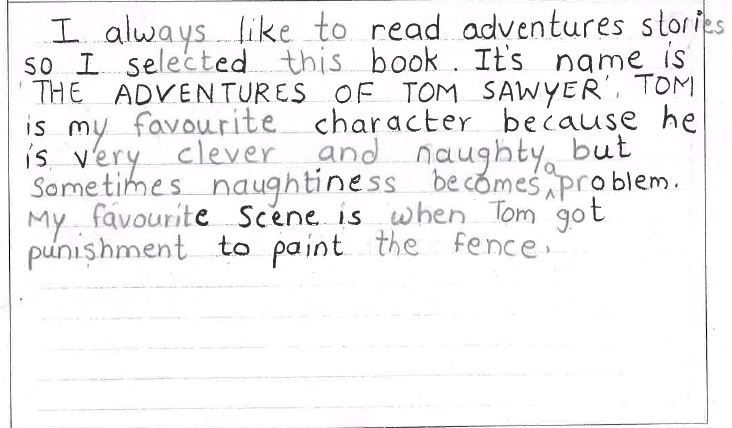 I always like to read adventures stories
so I selected this book. It's name is
'THE ADVENTURES OF TOM SAWYER'. TOM
is my favourite character because he
is very clever and naughty, but
sometimes naughtiness becomes a problem.
My favourite scene is when Tom got
punishment to paint the fence.